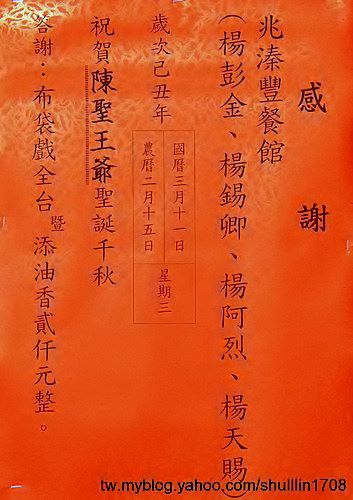 感謝
兆溱豐餐館
(楊彭金、楊錫卿、楊阿烈、楊天賜)
歲次己丑年
國曆三月十一日
農曆二月十五日
星期三
祝賀陳聖王爺聖誕千秋
答謝：布袋戲全台暨添油香貳仟元整。
tw.myblog.yahoo.com/shulllin1708